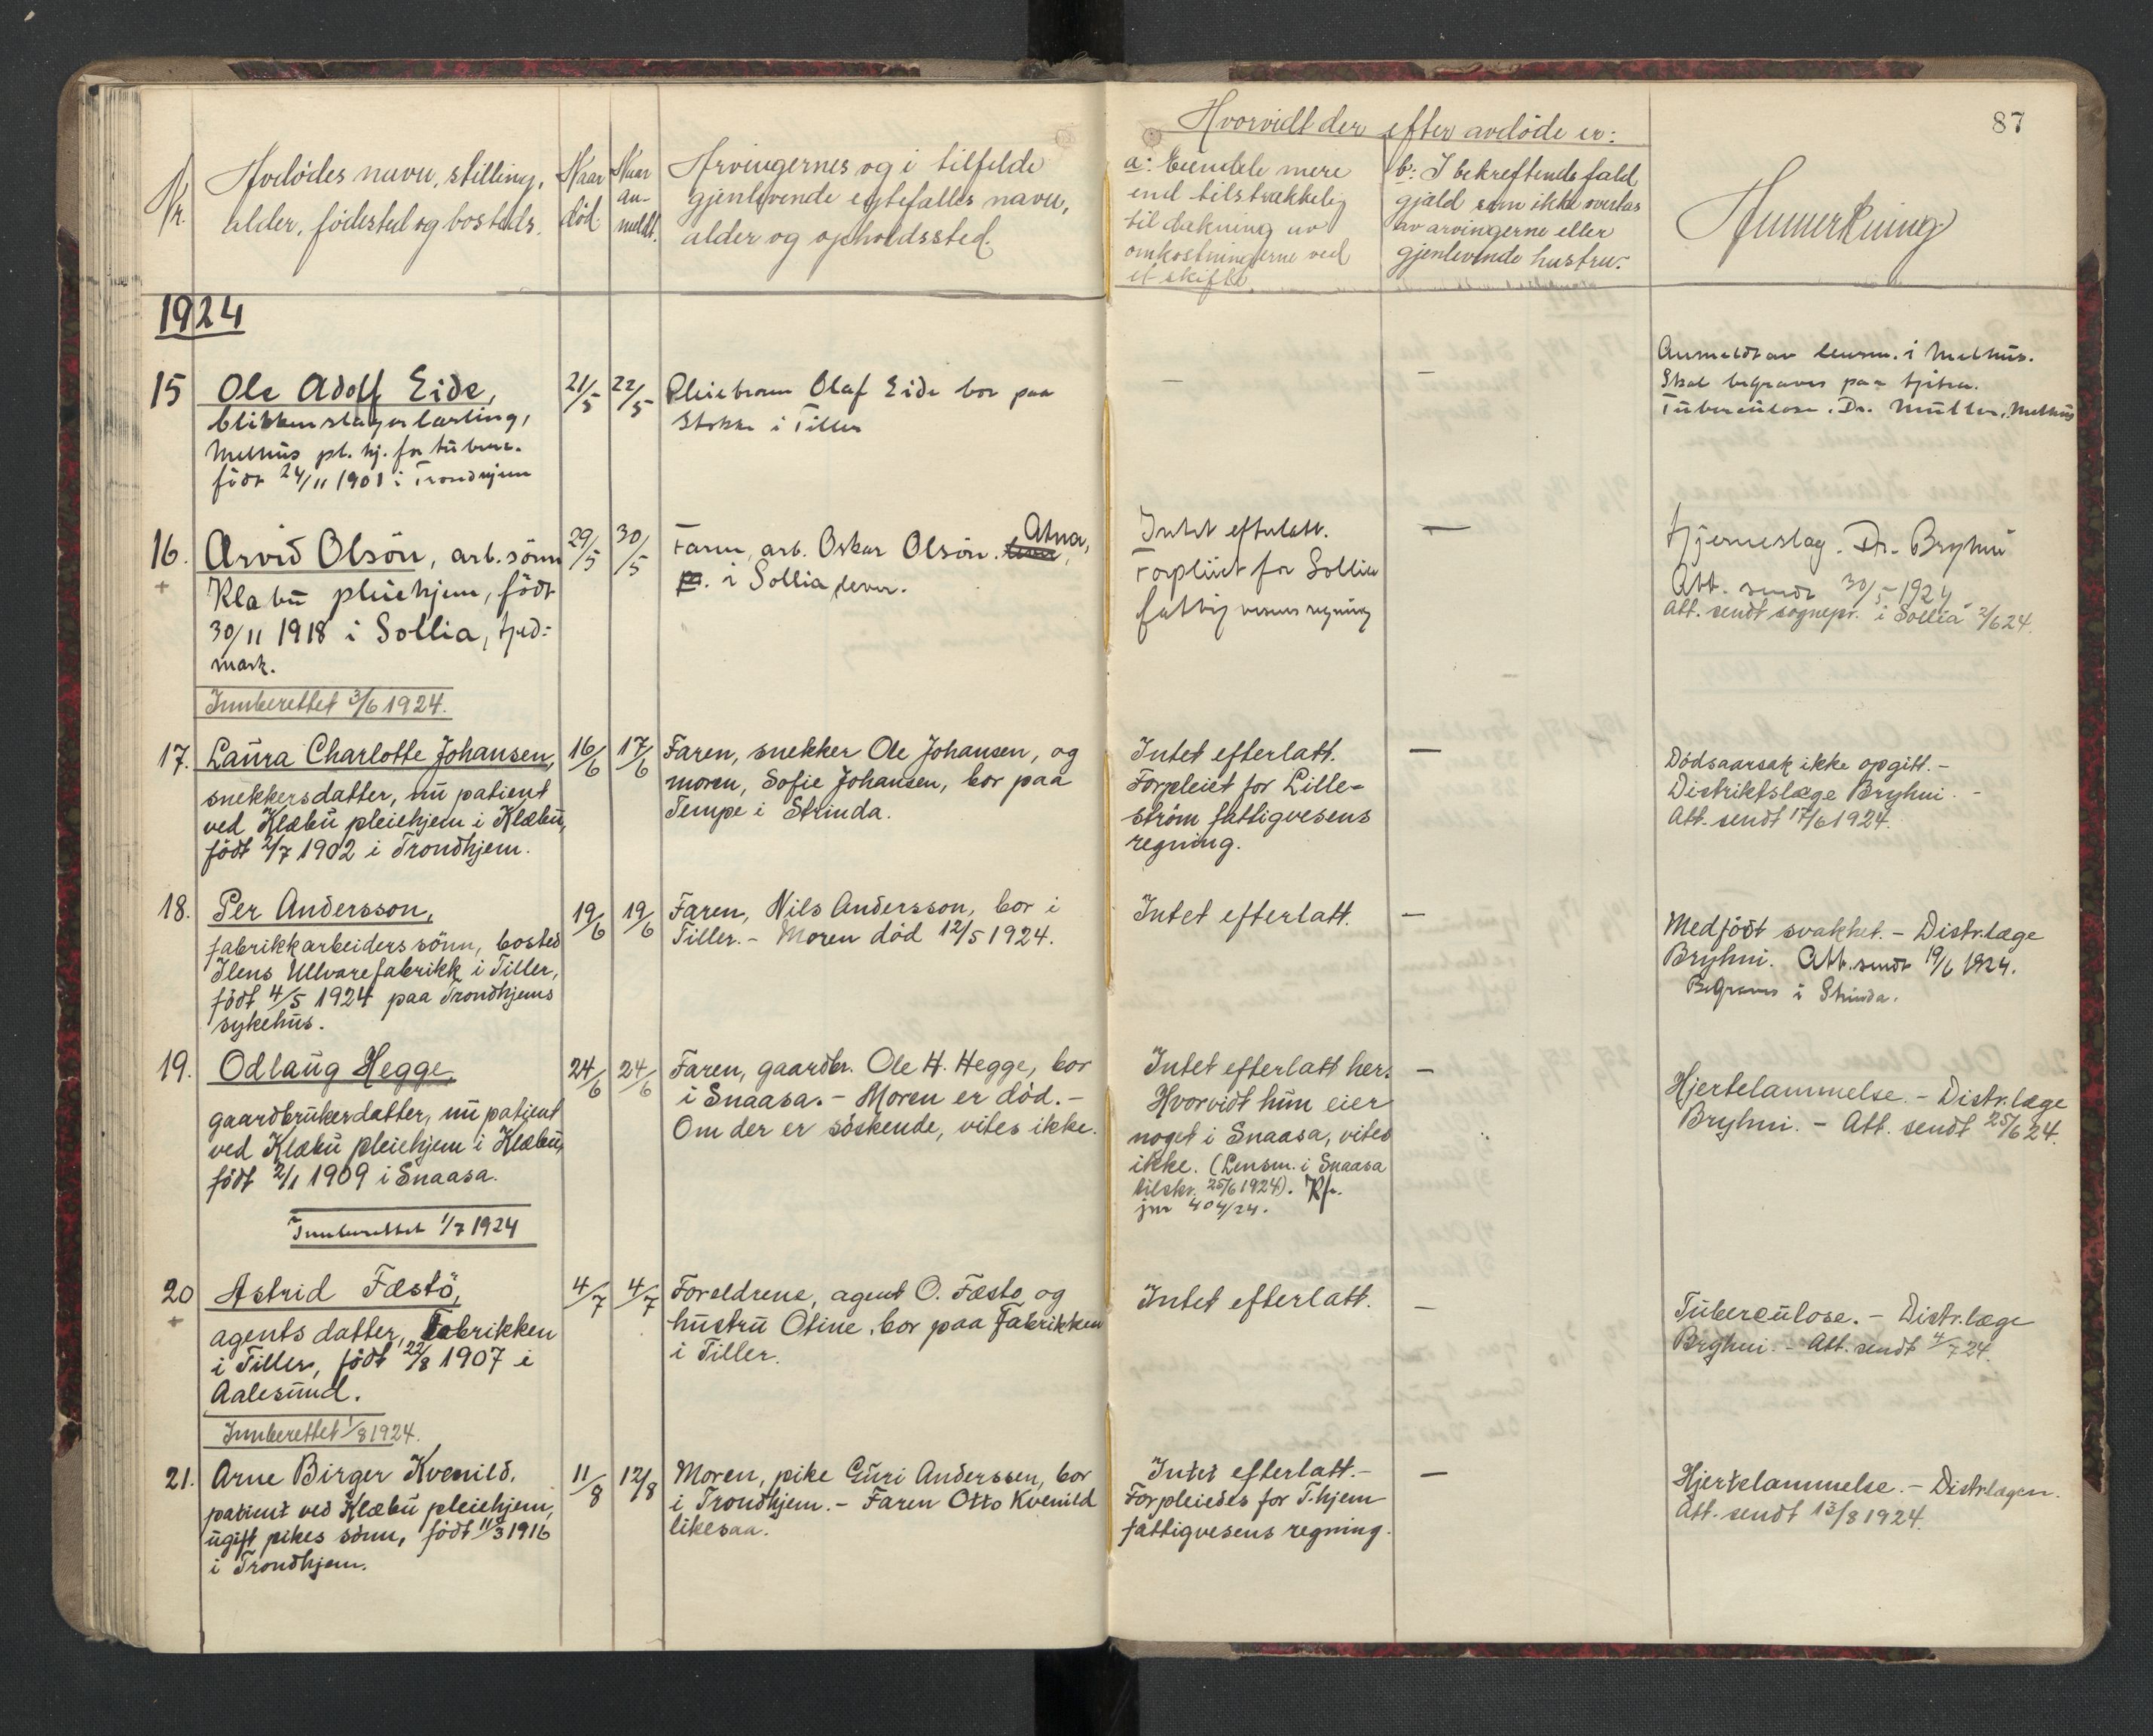 87
Hvorvidt der efter avdöde er:
Nr.
Avdödes navn, stilling,
alder, födested og bosteds.
Naar
död.
Naar
an-
meldt.
Arvingernes og i tilfelde
gjenlevende egtefelles navn,
alder og opholdssted.
a: Eiendele mere
end tilstrækkelig
til dækning av
omkostningerne ved
et skifte
b: I bekreftende fald
gjæld som ikke overtas
av arvingerne eller
gjenlevende hustru.
Anmerkning
1924
15
Ole Adolf Eide,
blikkenslagerlærling,
Melhus pl. hj. for tuberk.
födt 24/11 1901 i Trondhjem
21/5
22/5
Pleiebroren Olaf Eide bor paa
Stokke i Tiller
—
—
Anmeldt av lensm. i Melhus.
Skal begraves paa
Tuberculose. Dr. Müller, Melhus
16.
+
Arvid Olsön, arb. sönn
Klæbu pleiehjem, födt
30/11 1918 i Sollia, Hed-
mark.
29/5
30/5
Faren, arb. Oskar Olsön. Atna,
i Sollia, lever.
Intet efterlatt.
Forpleiet for Sollia
fattigvesens regning
—
Hjerneslag. Dr. Bryhni
Att. sendt 30/5 1924
Att. sendt sognepr. i Sollia 2/6 24.
Innberettet 3/6 1924.
17.
Laura Charlotte Johansen,
snekkersdatter, nu patient
ved Klæbu pleiehjem i Klæbu,
födt 2/7 1902 i Trondhjem.
16/6
17/6
Faren, snekker Ole Johansen, og
moren, Sofie Johansen, bor paa
Tempe i Strinda.
Intet efterlatt.
Forpleiet for Lille-
ström fattigvesens
regning.
—
Dödsaarsak ikke opgitt. -
Distriktslæge Bryhni. -
Att. sendt 17/6 1924.
18.
Per Andersson,
fabrikkarbeiders sönn, bosted
Ilens Ullvarefabrikk i Tiller,
födt 4/5 1924 paa Trondhjems
sykehus.
19/6
19/6
Faren, Nils Andersson, bor i
Tiller. - Moren död 12/5 1924.
Intet efterlatt.
—
Medfödt svakhet. - Distr.læge
Bryhni. Att. sendt 19/6 1924.
Begraves i Strinda.
19.
Odlaug Hegge,
gaardbrukerdatter, nu patient
ved Klæbu pleiehjem i Klæbu,
födt 2/1 1909 i Snaasa.
24/6
24/6
Faren, gaardbr. Ole H. Hegge, bor
i Snaasa. - Moren er död. -
Om der er söskende, vites ikke.
Intet efterlatt her.
Hvorvidt hun eier
noget i Snaasa, vites
ikke. (Lensm. i Snaasa
tilskr. 25/6 1924). Kfr.
jnr 404/24.
—
Hjertelammelse. - Distr.læge
Bryhni. - Att. sendt 25/6 24.
Innberettet 1/7 1924
20
+
Astrid Fæstö,
agents datter, Fabrikken
i Tiller, födt 22/8 1907 i
Aalesund.
4/7
4/7
Foreldrene, agent O. Fæsto og
hustru Otine, bor paa Fabrikken
i Tiller.
Intet efterlatt.
—
Tuberculose. - Distr.læge
Bryhni. - Att. sendt 4/7 24.
Innberettet 1/8 1924.
21.
Arne Birger Kvenild,
patient ved Klæbu pleiehjem,
ugift pikes sönn, födt 11/3 1916
i Trondhjem.
11/8
12/8
Moren, pike Guri Anderssen, bor
i Trondhjem. - Faren Otto Kvenild
likesaa.
Intet efterlatt. -
Forpleiedes for T.hjem
fattigvesens regning.
—
Hjertelammelse. - Distr.lægen.
Att. sendt 13/8 1924.